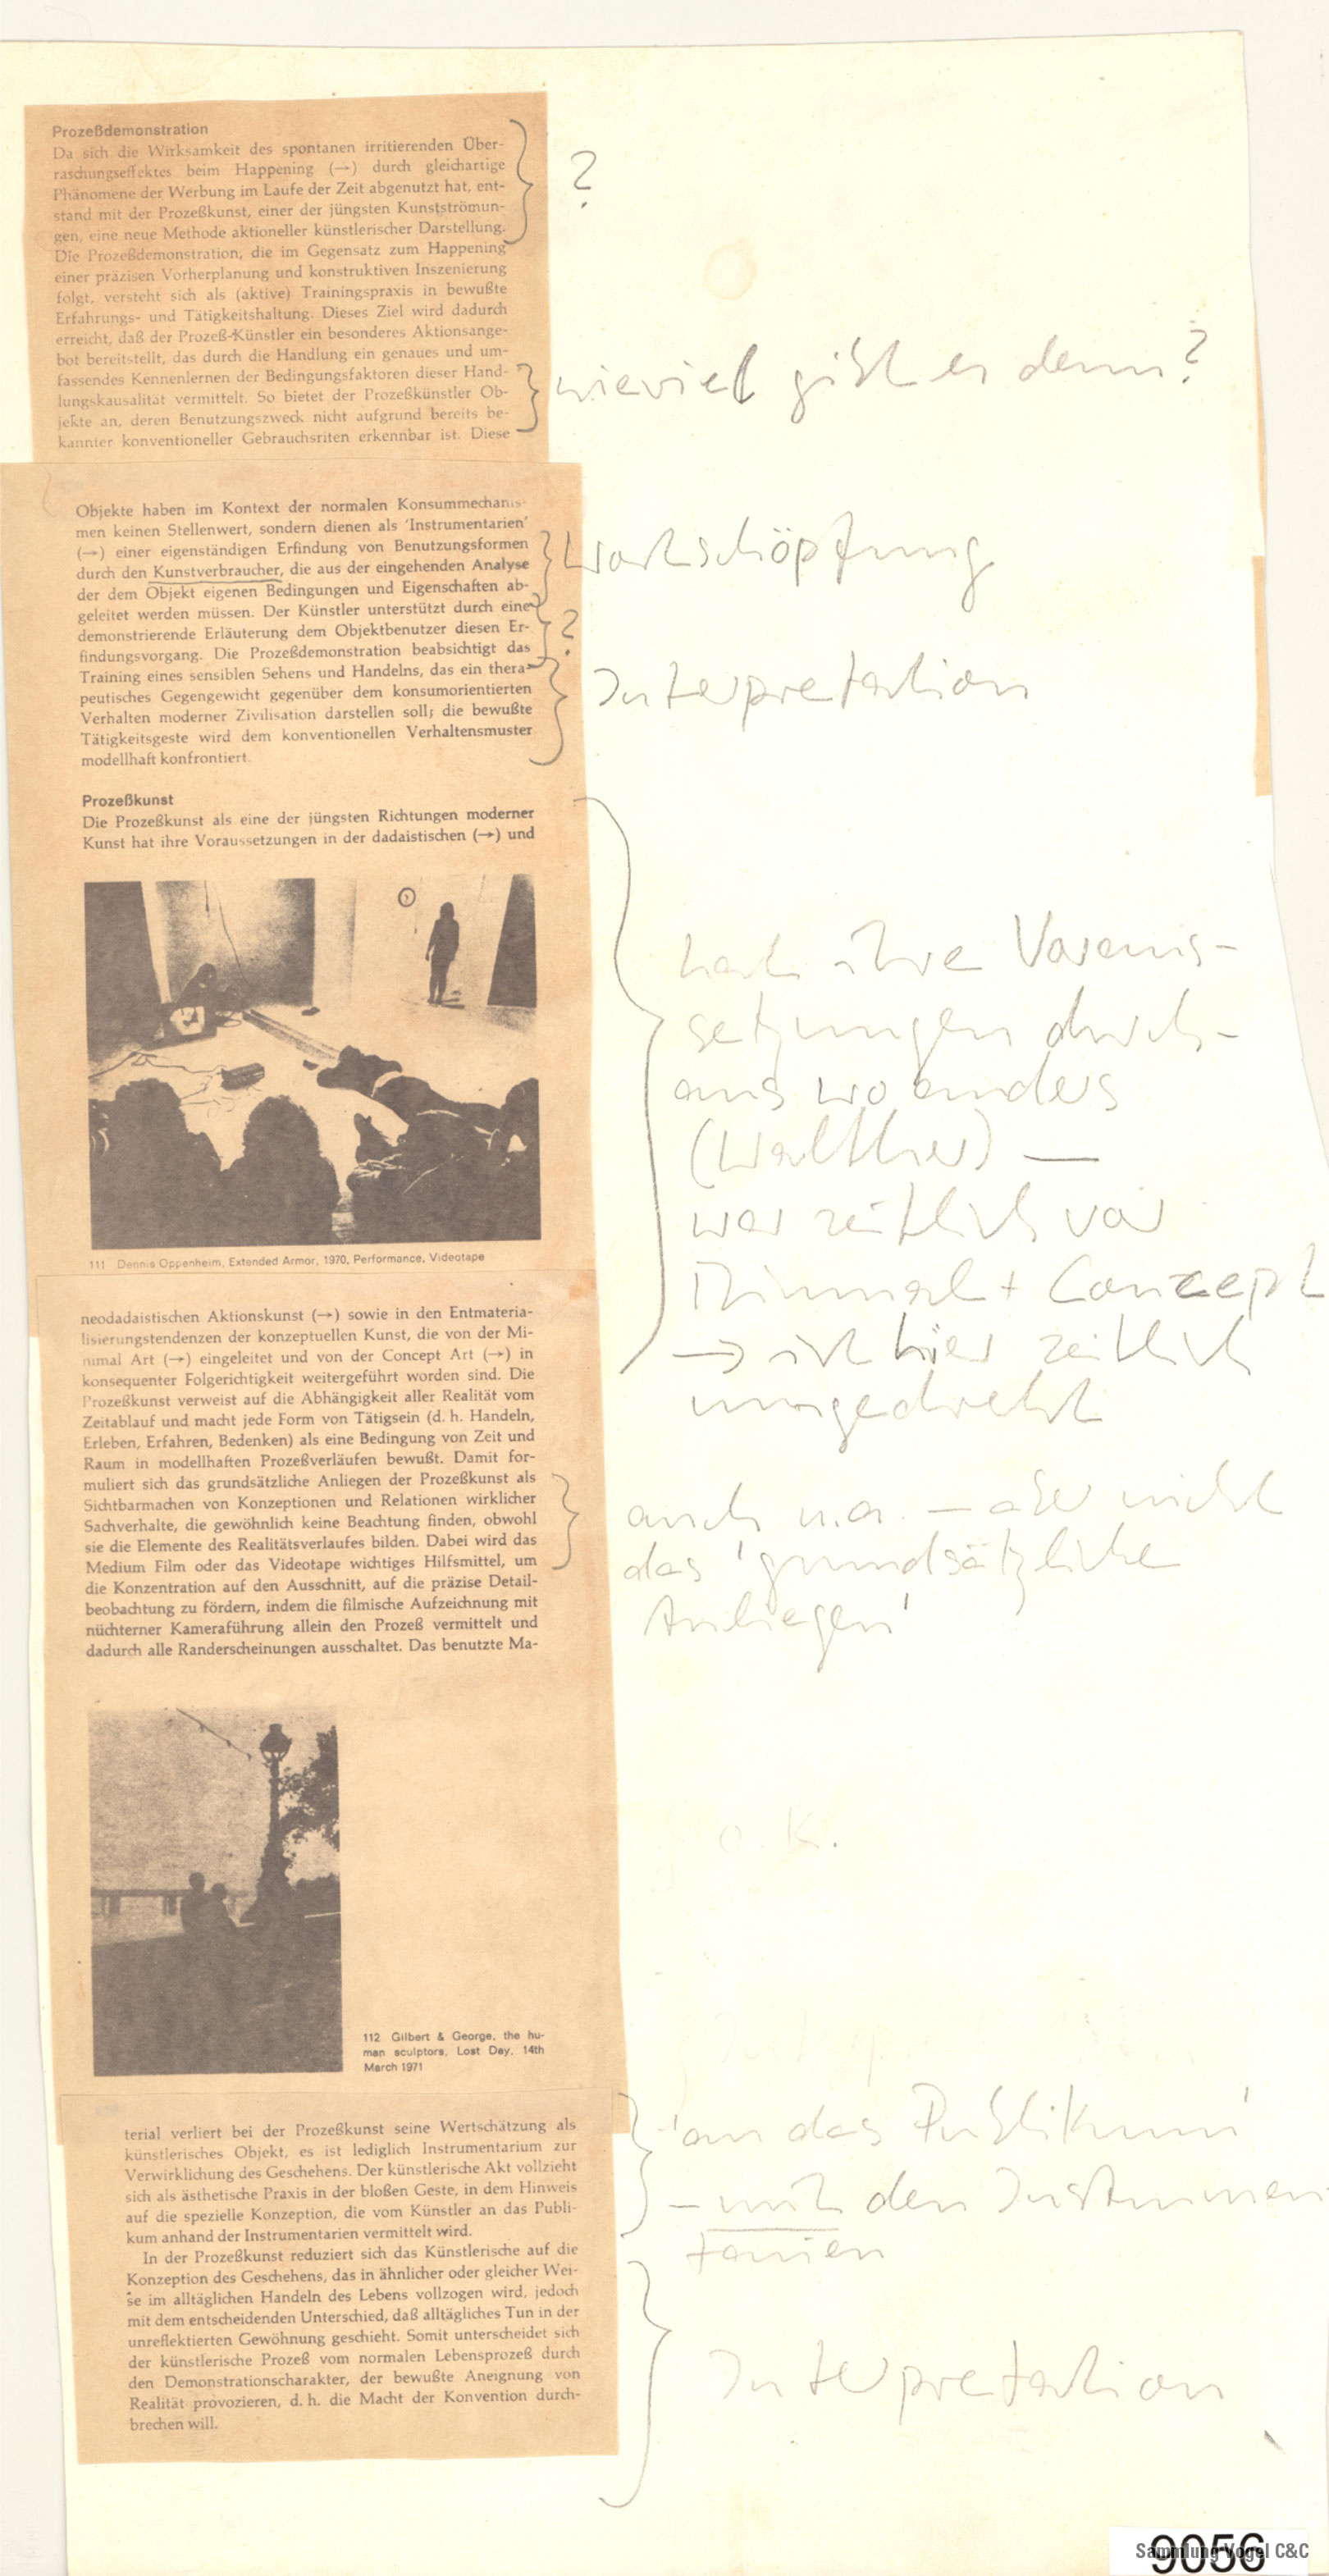 Prozeßdemonstration
Da sich die Wirksamkeit des spontanen irritierenden Über-
raschungseffektes beim Happening (→) durch gleichartige
Phänomene der Werbung im Laufe der Zeit abgenutzt hat, ent-
stand mit der Prozeßkunst, einer der jüngsten Kunstströmun-
gen, eine neue Methode aktioneller künstlerischer Darstellung.
?
Die Prozeßdemonstration, die im Gegensatz zum Happening
einer präzisen Vorherplanung und konstruktiven Inszenierung
folgt, versteht sich als (aktive) Trainingspraxis in bewußte
Erfahrungs- und Tätigkeitshaltung. Dieses Ziel wird dadurch
erreicht, daß der Prozeß-Künstler ein besonderes Aktionsange-
bot bereitstellt, das durch die Handlung ein genaues und um-
fassendes Kennenlernen der Bedingungsfaktoren dieser Hand-
lungskausalität vermittelt. So bietet der Prozeßkünstler Ob-
jekte an, deren Benutzungszweck nicht aufgrund bereits be-
kannter konventioneller Gebrauchsriten erkennbar ist. Diese
wieviel gibt es denn?
Objekte haben im Kontext der normalen Konsummechanis-
men keinen Stellenwert, sondern dienen als 'Instrumentarien'
(→) einer eigenständigen Erfindung von Benutzungsformen
durch den Kunstverbraucher, die aus der eingehenden Analyse
der dem Objekt eigenen Bedingungen und Eigenschaften ab-
geleitet werden müssen. Der Künstler unterstützt durch eine
demonstrierende Erläuterung dem Objektbenutzer diesen Er-
findungsvorgang. Die Prozeßdemonstration beabsichtigt das
Training eines sensiblen Sehens und Handelns, das ein thera-
peutisches Gegengewicht gegenüber dem konsumorientierten
Verhalten moderner Zivilisation darstellen soll; die bewußte
Tätigkeitsgeste wird dem konventionellen Verhaltensmuster
modellhaft konfrontiert.
Wortschöpfung
?
Interpretation
Prozeßkunst
Die Prozeßkunst als eine der jüngsten Richtungen moderner
Kunst hat ihre Voraussetzungen in der dadaistischen (→) und
111 Dennis Oppenheim, Extended Armor, 1970, Performance, Videotape
hat ihre Voraus-
setzungen durch-
aus wo anders
(Walther) —
war zeitlich vor
Minimal + Concept
→ ist hier zeitlich
umgedreht
neodadaistischen Aktionskunst (→) sowie in den Entmateria-
lisierungstendenzen der konzeptuellen Kunst, die von der Mi-
nimal Art (→) eingeleitet und von der Concept Art (→) in
konsequenter Folgerichtigkeit weitergeführt worden sind. Die
Prozeßkunst verweist auf die Abhängigkeit aller Realität vom
Zeitablauf und macht jede Form von Tätigsein (d. h. Handeln,
Erleben, Erfahren, Bedenken) als eine Bedingung von Zeit und
Raum in modellhaften Prozeßverläufen bewußt. Damit for-
muliert sich das grundsätzliche Anliegen der Prozeßkunst als
Sichtbarmachen von Konzeptionen und Relationen wirklicher
Sachverhalte, die gewöhnlich keine Beachtung finden, obwohl
sie die Elemente des Realitätsverlaufes bilden. Dabei wird das
Medium Film oder das Videotape wichtiges Hilfsmittel, um
die Konzentration auf den Ausschnitt, auf die präzise Detail-
beobachtung zu fördern, indem die filmische Aufzeichnung mit
nüchterner Kameraführung allein den Prozeß vermittelt und
dadurch alle Randerscheinungen ausschaltet. Das benutzte Ma-
auch u.a. — aber nicht
das 'grundsätzliche
Anliegen'
o.K.
112 Gilbert & George, the hu-
man sculptors, Lost Day, 14th
March 1971
terial verliert bei der Prozeßkunst seine Wertschätzung als
künstlerisches Objekt, es ist lediglich Instrumentarium zur
Verwirklichung des Geschehens. Der künstlerische Akt vollzieht
sich als ästhetische Praxis in der bloßen Geste, in dem Hinweis
auf die spezielle Konzeption, die vom Künstler an das Publi-
kum anhand der Instrumentarien vermittelt wird.
'an das Publikum'
– mit den Instrumen
tarien
In der Prozeßkunst reduziert sich das Künstlerische auf die
Konzeption des Geschehens, das in ähnlicher oder gleicher Wei-
se im alltäglichen Handeln des Lebens vollzogen wird, jedoch
mit dem entscheidenden Unterschied, daß alltägliches Tun in der
unreflektierten Gewöhnung geschieht. Somit unterscheidet sich
der künstlerische Prozeß vom normalen Lebensprozeß durch
den Demonstrationscharakter, der bewußte Aneignung von
Realität provozieren, d. h. die Macht der Konvention durch-
brechen will.
Interpretation
9056
Sammlung Vogel C&C